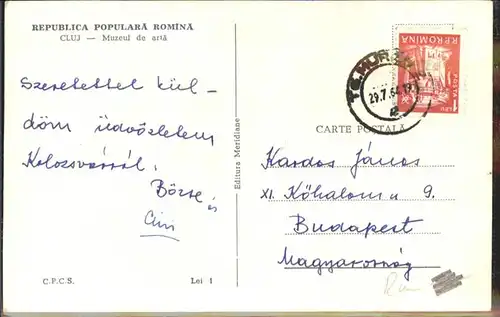 REPUBLICA POPULARĂ ROMÎNĂ
CLUJ — Muzeul de artă
Szeretettel kül-
döm üdvözletem
Kolozsvárról.
Börzse és
C.P.C.S.
Lei 1
Editura Meridiane
R.P.ROMINA
POSTA
1 LEU
29.7.64
CARTE POŞTALĂ
Kardos János
XI. Kőhalom u 9.
Budapest
Magyarország